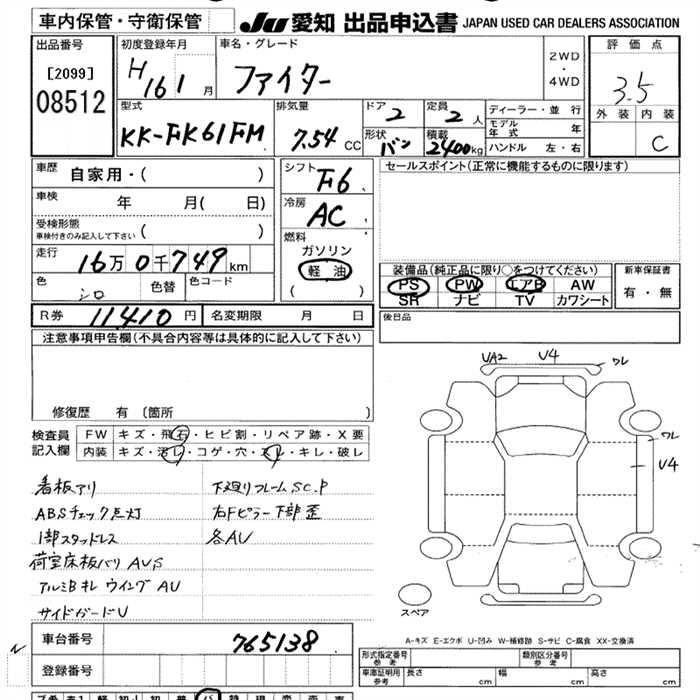 車内保管・守衛保管 JU 愛知 出品申込書 JAPAN USED CAR DEALERS ASSOCIATION
出品番号 初度登録年月 車名・グレード 評価点
[2099] H 16 1 月 ファイター 2WD・4WD 3.5
08512 型式 排気量 ドア 2 定員 2 人 ディーラー・並 行 外装 内装
KK-FK61FM 7.54 CC 形状 バン 積載 2400 kg モデル年式 年 C
ハンドル 左・右
車歴 自家用・( ) シフト F6 セールスポイント(正常に機能するものに限ります)
車検 年 月( 日) 冷房 AC
受検形態 車検付きのみ記入して下さい ( ) 燃料
走行 16万0千749km ガソリン
軽油 装備品(純正品に限り○をつけてください) 新車保証書
色 シロ 色替 色コード ( ) PS PW エアB AW 有・無
SR ナビ TV カワシート
R券 11410 円 名変期限 月 日 後日品
注意事項申告欄(不具合内容等は具体的に記入して下さい)
UA2 U4 ワレ
修復歴 有 (箇所 )
検査員 FW キズ・飛石・ヒビ割・リペア跡・X要 ワレ
記入欄 内装 キズ・汚レ・コゲ・穴・スレ・キレ・破レ U4
看板アリ 下廻りフレームSC.P
ABSチェック点灯 右Fピラー下部歪
1部スタッドレス 各AU
荷室床板バリ AUS
アルミBキレ ウイングAU
サイドガードU スペア
A-キズ E-エクボ U-凹み W-補修跡 S-サビ C-腐食 XX-交換済
車台番号 765138 形式指定番号 参考 類別区分番号 参考
登録番号 車庫証明用 参考 長さ cm 幅 cm 高さ cm